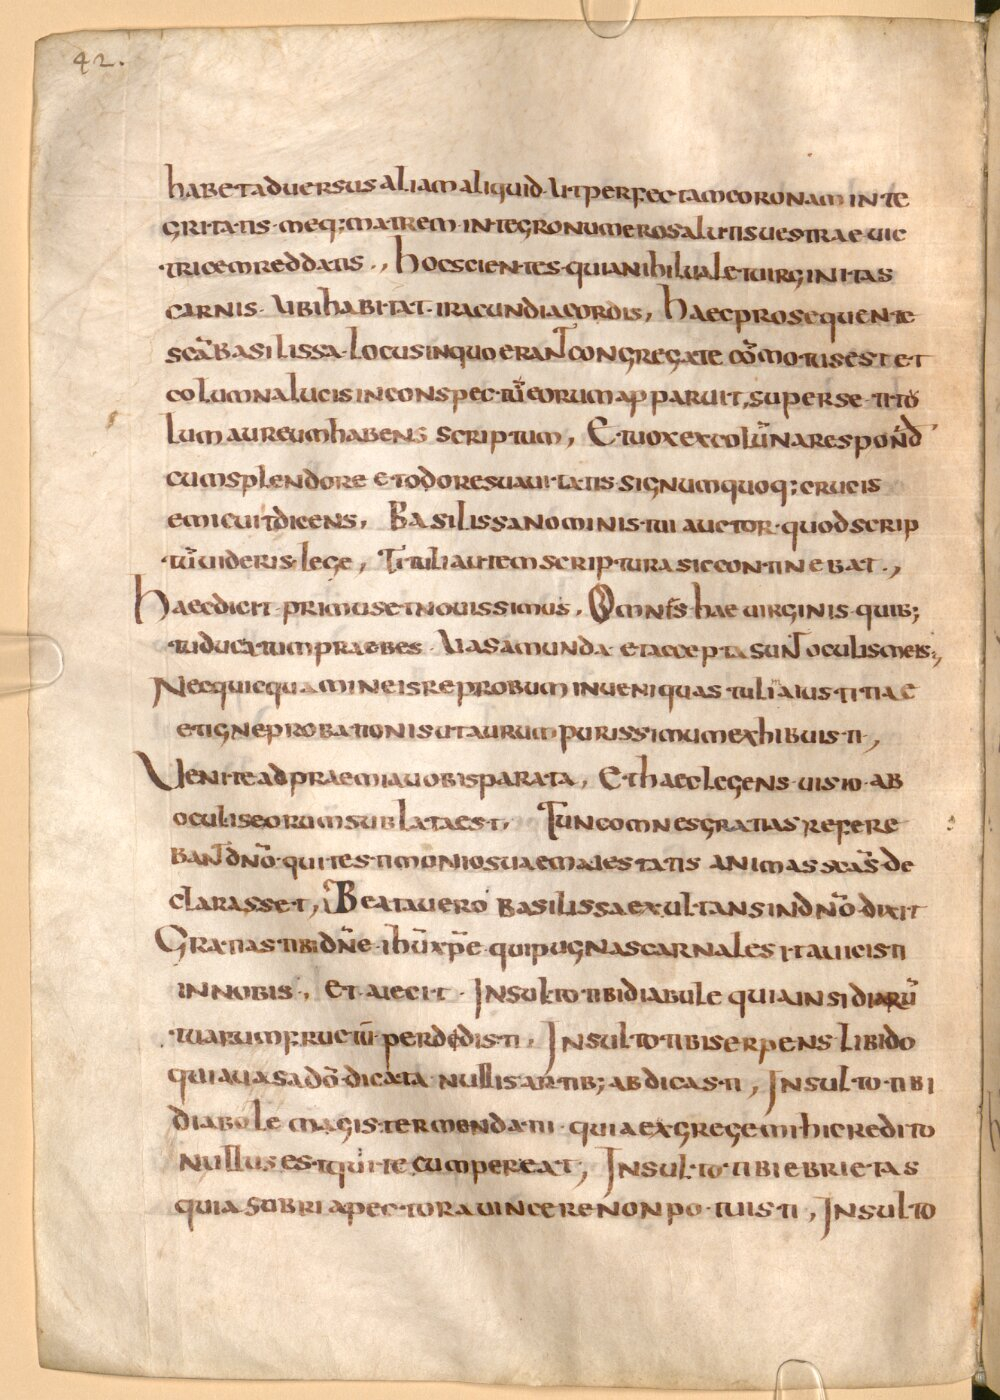 42.
habet aduersus aliam aliquid. Ut perfectam coronam inte
gritatis. meq; matrem integro numero salutis uestrae uic
tricem reddatis., hoc scientes. quia nihil ualet uirginitas
carnis. Ubi habitat. iracundia cordis, haec prosequente
scā basilissa. locus in quo erant congregate cōmotus est et
columna lucis in conspectū eorum apparuit, super se titō
lum aureum habens scriptum, Et uox ex colūna respond̄
cum splendore et odore suauitatis. signum quoq; crucis
emicuit dicens, Basilissa nominis tui auctor. quod scrip
tū uideris. lege, Tituli autem scriptura sic continebat.,
haec dicit. primus et nouissimus. Omnes hae uirginis. quib;
tu ducatum praebes. Uasa munda. et accepta sunt oculis meis.,
Nec quicquam in eis reprobum inueni quas tuli a ius titiae
et igne probationis ut aurum purissimum exhibuisti,
Uenite ad praemia uobis parata, Et haec legens. uisio. ab
oculis eorum sublata est, Tunc omnes gratias refere
bant dnō. qui testimonio suae maiestatis animas scās de
clarasset, Beata uero basilissa exultans in dnō. dixit
Gratias tibi dnē. ihū xpē. qui pugnas carnales ita uicisti
in nobis., Et aiecit. Insulto tibi diabule quia insidiarū
tuarum fructū perdedisti, Insulto tibi serpens libido
qui a uasa dō. dicata nullis artib; abdicasti, Insulto tibi
diabole magister mendatii. quia ex grege mihi credito
nullus est qui te cum pereat, Insulto tibi ebrietas
quia subria pectora uincere non potuisti, Insulto